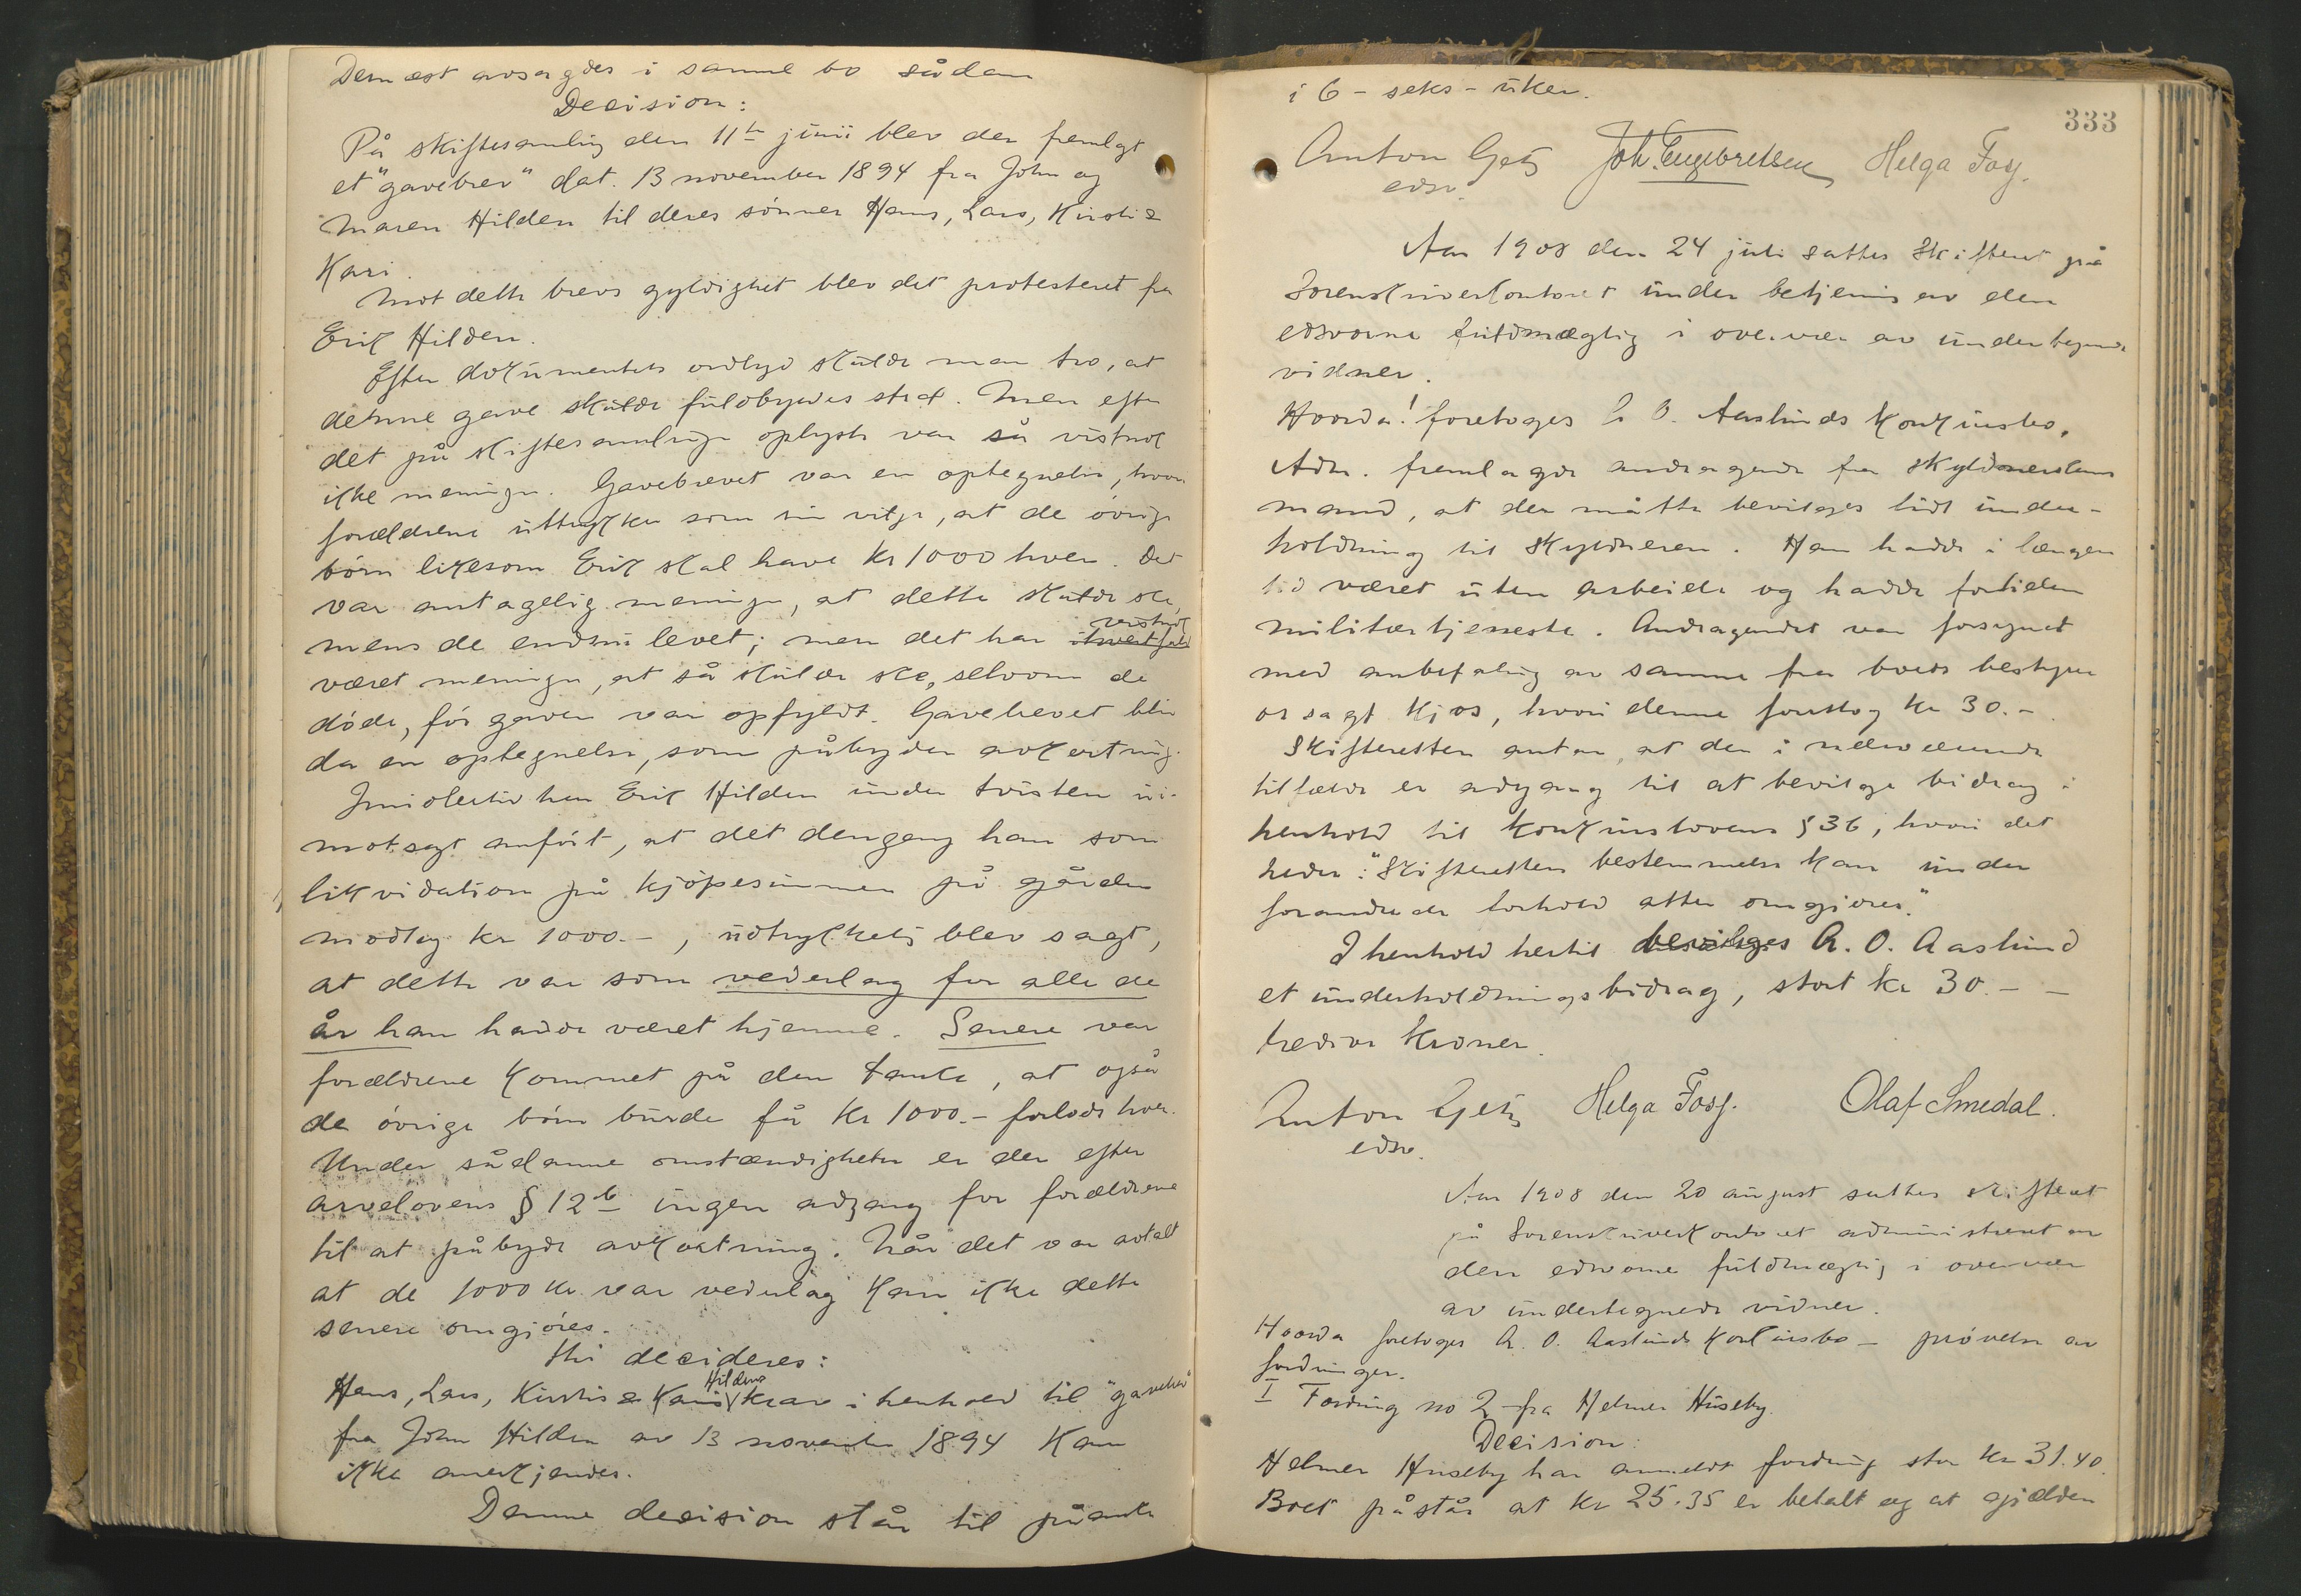 Dernæst avsagdes i samme bo sådan
Decision:
På skiftesamling den 11te juni blev der fremlagt
et "gavebrev" dat. 13 november 1894 fra John og
Maren Hilden til deres sönner Hans, Lars, Kirsti &
Kari.
Mot dette brevs gyldighet blev det protesteret fra
Erik Hilden.
Efter dokumentets ordlyd skulde man tro, at
denne gave skulde fuldbyrdes strax. Men efter
det på skiftesamlingen oplyste var så vistnok
ikke meningen. Gavebrevet var en optegnelse, hvori
forældrene uttrykker som sin vilje, at de övrige
börn likesom Erik skal have kr 1000 hver. Det
var antagelig meningen, at dette skulde ske,
mens de endnu levet; men det har vistnok
været meningen, at så skulde ske, selvom de
döde, för gaven var opfyldt. Gavebrevet blir
da en optegnelse, som påbyder avkortning.
Imidlertid har Erik Hilden under tvisten ui-
motsagt anfört, at det dengang han som
likvidation på kjöpesummen på gården
modtog kr 1000.-, udtrykkelig blev sagt,
at dette var som vederlag for alle de
år han hadde været hjemme. Senere var
forældrene kommet på den tanke, at også
de övrige börn burde få kr 1000.- forlods hver.
Under sådanne omstændigheter er der efter
arvelovens § 12 b ingen adgang for forældrene
til at påbyde avkortning. Når det var avtalt
at de 1000 kr var vederlag kan ikke dette
senere omgjöres.
Thi decideres:
Hans, Lars, Kirstis & Karis Hildens krav i henhold til "gavebrev"
fra John Hilden av 13 november 1894 kan
ikke anerkjendes.
Denne decision står til påanke
i 6 - seks - uker.
333
Anton Getz Joh. Engebretsen Helga Foss.
edsv.
Aar 1908 den 24 juli sattes skifteret på
Sorenskriverkontoret under betjening av den
edsvorne fuldmægtig i overvær av undertegnede
vidner.
Hvorda! foretoges A. O. Aaslunds konkursbo.
Adm. fremlagde andragende fra skyldnerens
mand, at der måtte bevilges lidt under-
holdning til skyldneren. Han hadde i længere
tid været uten arbeide og hadde fortiden
militærtjeneste. Andragendet var forsynet
med anbefaling av samme fra boets bestyrer
o.r. sagf. Kjos, hvori denne foreslog kr 30.-
Skifteretten antar, at der i nærværende
tilfælde er adgang til at bevilge bidrag i
henhold til konkurslovens § 36, hvori det
heder: "Skifterettens bestemmelse kan under
forandrede forhold atter omgjöres."
I henhold hertil bevilges A. O. Aaslund
et underholdningsbidrag, stort kr 30.- -
tredive kroner.
Anton Getz Helga Foss. Olaf Smedal.
edsv.
Aar 1908 den 20 august sattes skifteret
på Sorenskriverkontoret administreret av
den edsvorne fuldmægtig i overvær
av undertegnede vidner.
Hvorda foretoges A. O. Aaslunds konkursbo - prövelse av
fordringer.
I Fordring no 2 fra Helmer Huseby.
Decision:
Helmer Huseby har anmeldt fordring stor kr 31.40.
Boet påstår at kr 25.35 er betalt og at gjælden